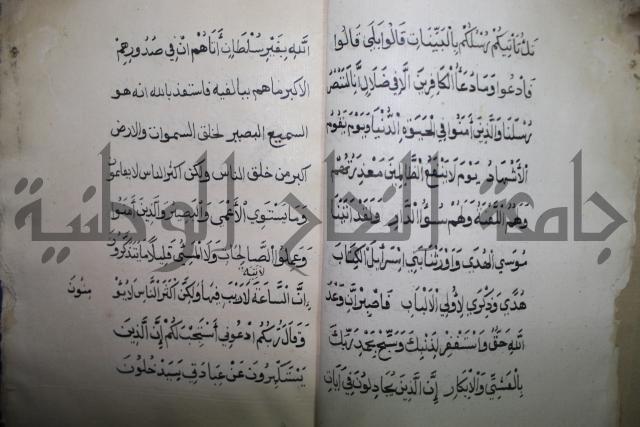 تك تأتيكم رسلكم بالبينات قالوا بلى قالوا
فادعوا وما دعاؤ الكافرين الا في ضلال انا لننصر
رسلنا والذين امنوا في الحيوة الدنيا ويوم يقوم
الأشهاد يوم لا ينفع الظالمين معذرتهم
ولهم اللعنة ولهم سوء الدار ولقد اتينا
موسى الهدى واورثنا بني اسرائيل الكتاب
هدى وذكرى لأولي الألباب فاصبر ان وعد
الله حق واستغفر لذنبك وسبح بحمد ربك
بالعشي والأبكار ان الذين يجادلون في آيات
الله بغير سلطان أتاهم ان في صدورهم
الاكبر ماهم ببالغيه فاستعذ بالله انه هو
السميع البصير لخلق السموات والارض
اكبر من خلق الناس ولكن اكثر الناس لا يعلمون
وما يستوي الأعمى والبصير والذين امنوا
وعملوا الصالحات ولا المسئ قليلا ما تتذكرون
لاتية
ان الساعة لا ريب فيها ولكن اكثر الناس لا يؤ
منون
وقال ربكم ادعوني أستجب لكم إن الذين
يستكبرون عن عبادتي سيدخلون
جامعة النجاح الوطنية